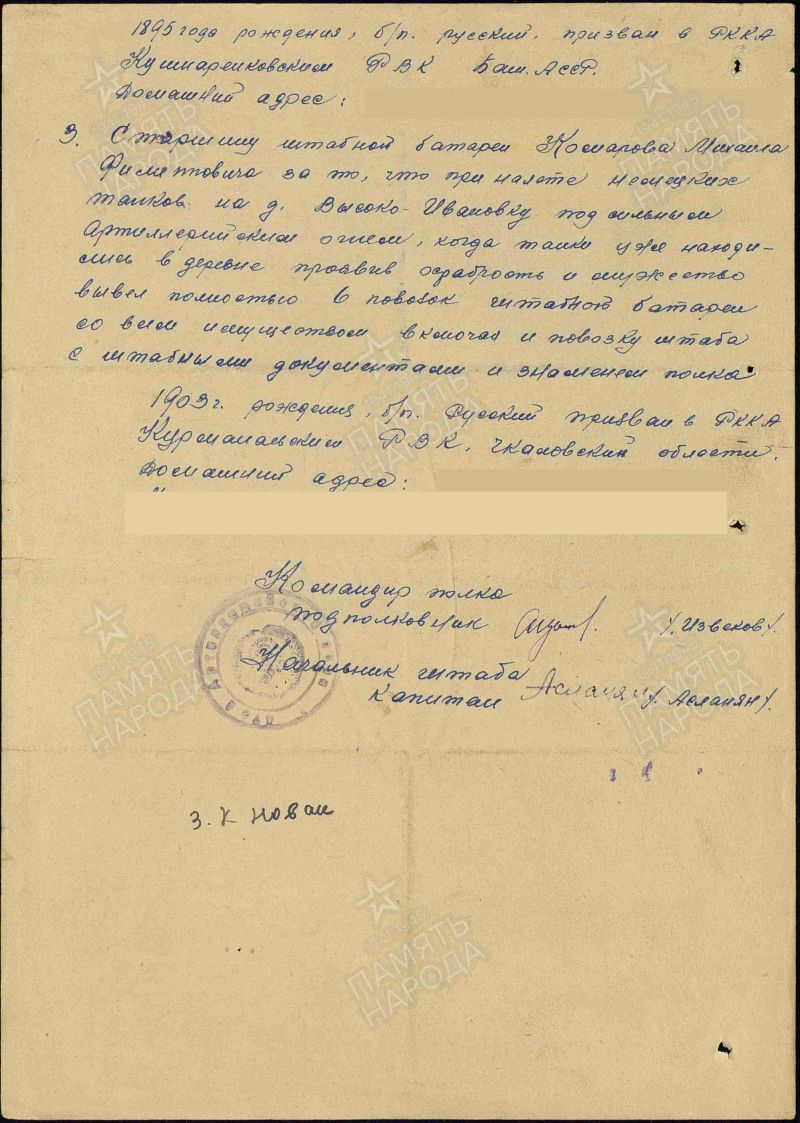 1895 года рождения, б/п. русский, призван в РККА
Кушнаренковским РВК Баш. АССР.
Домашний адрес:
3. Старшину штабной батареи Комарова Михаила
Филипповича за то, что при налете немецких
танков на д. Высоко-Ивановку под сильным
Артиллерийским огнем, когда танки уже находи-
лись в деревне проявив храбрость и мужество
вывел полностью 6 повозок штабной батареи
со всем имуществом включая и повозку штаба
с штабными документами и знаменем полка
1903 г. рождения, б/п. Русский призван в РККА
Курманаевским РВК, Чкаловской области.
Домашний адрес:
Командир полка
подполковник /Извеков/.
Начальник штаба
Капитан Асланян /Асланян/.
З. К Новам
ПАМЯТЬ НАРОДА